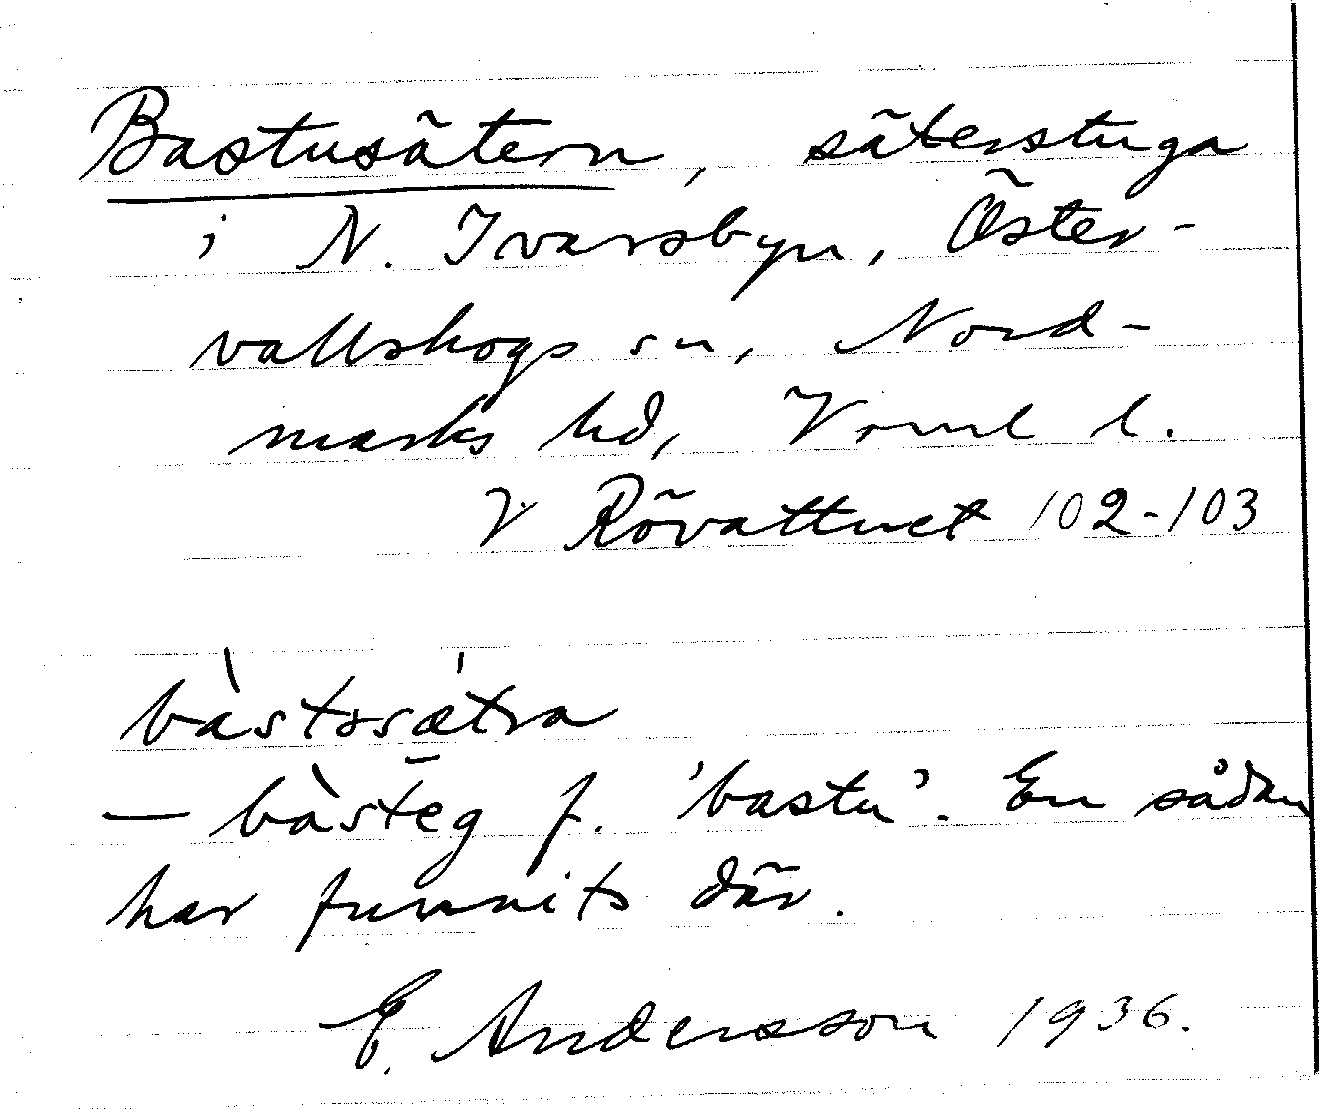 Bastusätern, säterstuga
i N. Ivarsbyn, Öster-
vallskogs sn, Nord-
marks hd, Vrml l.
V Rövattnet 102-103
bàstosǽtra
— bàsteg f. 'bastu'. En sådan
har funnits där.
E. Andersson 1936.